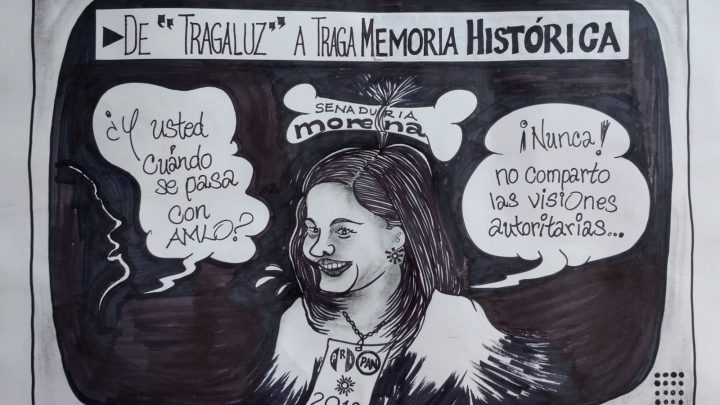 ▶DE "TRAGALUZ" A TRAGA MEMORIA HISTÓRICA
SENADURIA
morena
¿Y usted
cuándo
se pasa
con
AMLO?
¡Nunca!
no comparto
las visiones
autoritarias...
PRI PAN